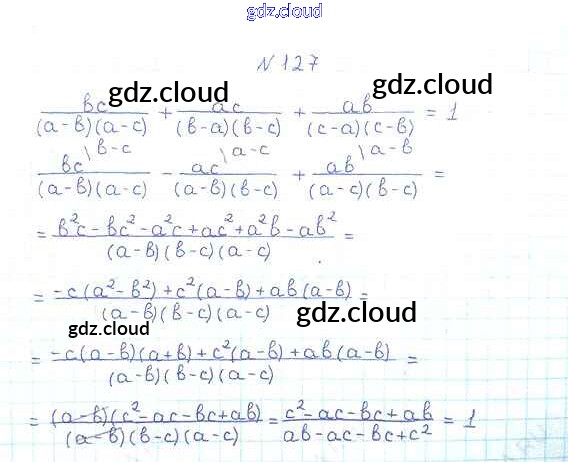 gdz.cloud
N 127
gdz.cloud gdz.cloud
bc/((a-b)(a-c)) + ac/((b-a)(b-c)) + ab/((c-a)(c-b)) = 1
bc\b-c/((a-b)(a-c)) - ac\a-c/((a-b)(b-c)) + ab\a-b/((a-c)(b-c)) =
= (b²c - bc² - a²c + ac² + a²b - ab²)/((a-b)(b-c)(a-c)) =
= (-c(a² - b²) + c²(a-b) + ab(a-b))/((a-b)(b-c)(a-c)) =
gdz.cloud gdz.cloud
= (-c(a-b)(a+b) + c²(a-b) + ab(a-b))/((a-b)(b-c)(a-c)) =
= ((a-b)(c² - ac - bc + ab))/((a-b)(b-c)(a-c)) = (c² - ac - bc + ab)/(ab - ac - bc + c²) = 1